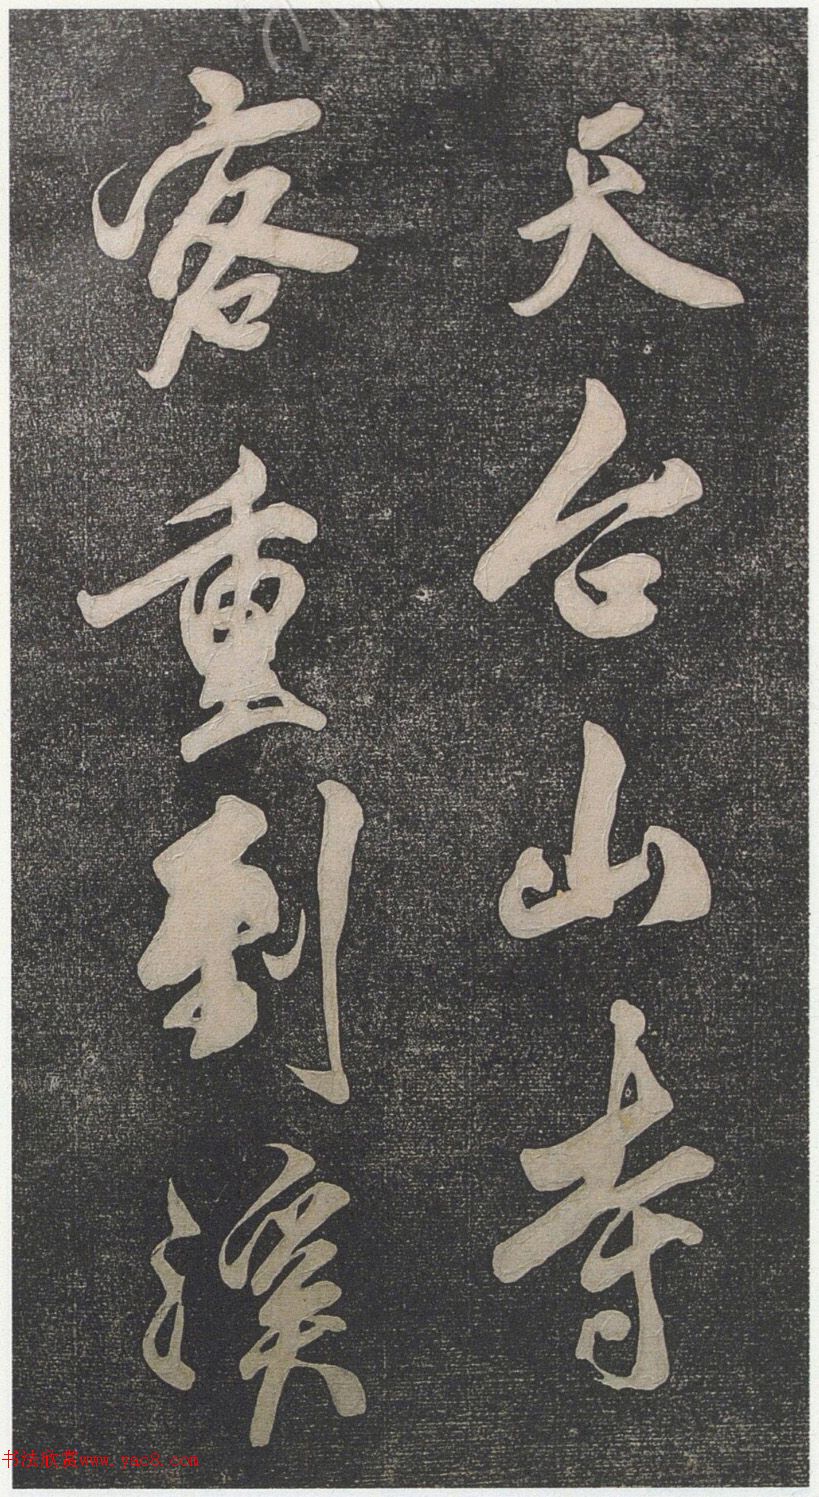 天台山寺
客重到溪
书法欣赏www.yac8.com